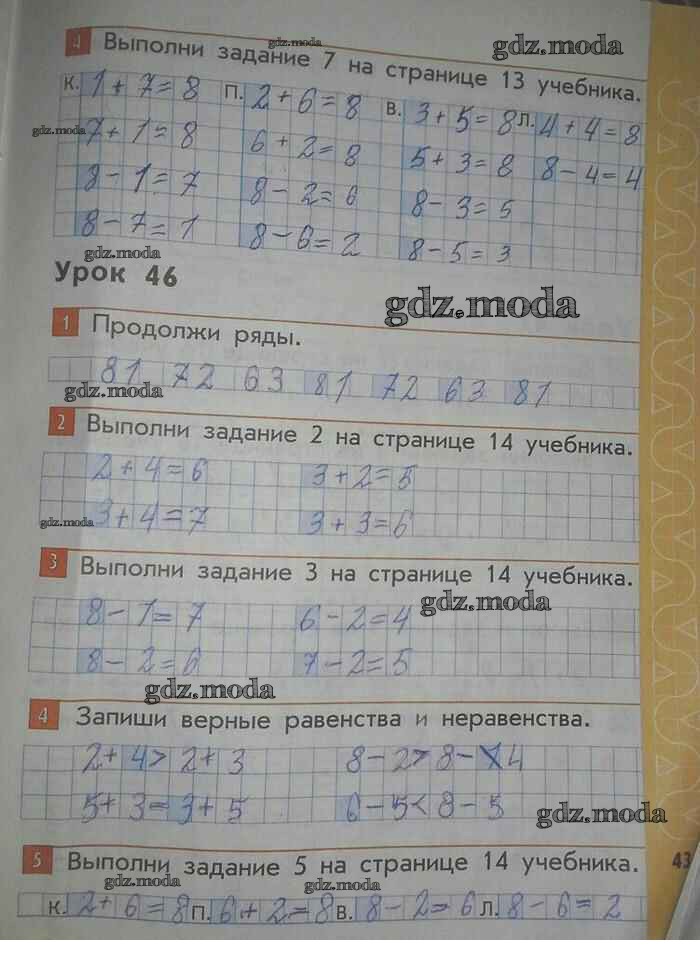 4 Выполни задание 7 на странице 13 учебника.
gdz.moda
gdz.moda
К. 1+7=8 П. 2+6=8 В. 3+5=8 Л. 4+4=8
gdz.moda
7+1=8 6+2=8 5+3=8 8-4=4
8-1=7 8-2=6 8-3=5
8-7=1 8-6=2 8-5=3
gdz.moda
Урок 46
gdz.moda
1 Продолжи ряды.
81 72 63 81 72 63 81
gdz.moda
2 Выполни задание 2 на странице 14 учебника.
2+4=6 3+2=5
3+4=7 3+3=6
gdz.moda
3 Выполни задание 3 на странице 14 учебника.
gdz.moda
8-1=7 6-2=4
8-2=6 7-2=5
gdz.moda
4 Запиши верные равенства и неравенства.
2+4>2+3 8-2>8-4
5+3=3+5 6-5<8-5
gdz.moda
5 Выполни задание 5 на странице 14 учебника.
43
gdz.moda
gdz.moda
К. 2+6=8 П. 6+2=8 В. 8-2=6 Л. 8-6=2